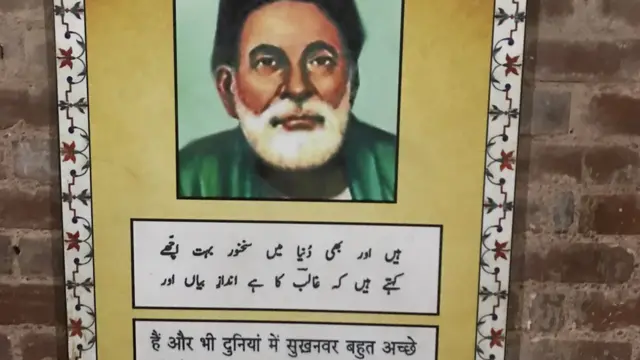 ہیں اور بھی دُنیا میں سخنور بہت اچھّے
کہتے ہیں کہ غالبؔ کا ہے اندازِ بیاں اور
हैं और भी दुनियां में सुखनवर बहुत अच्छे